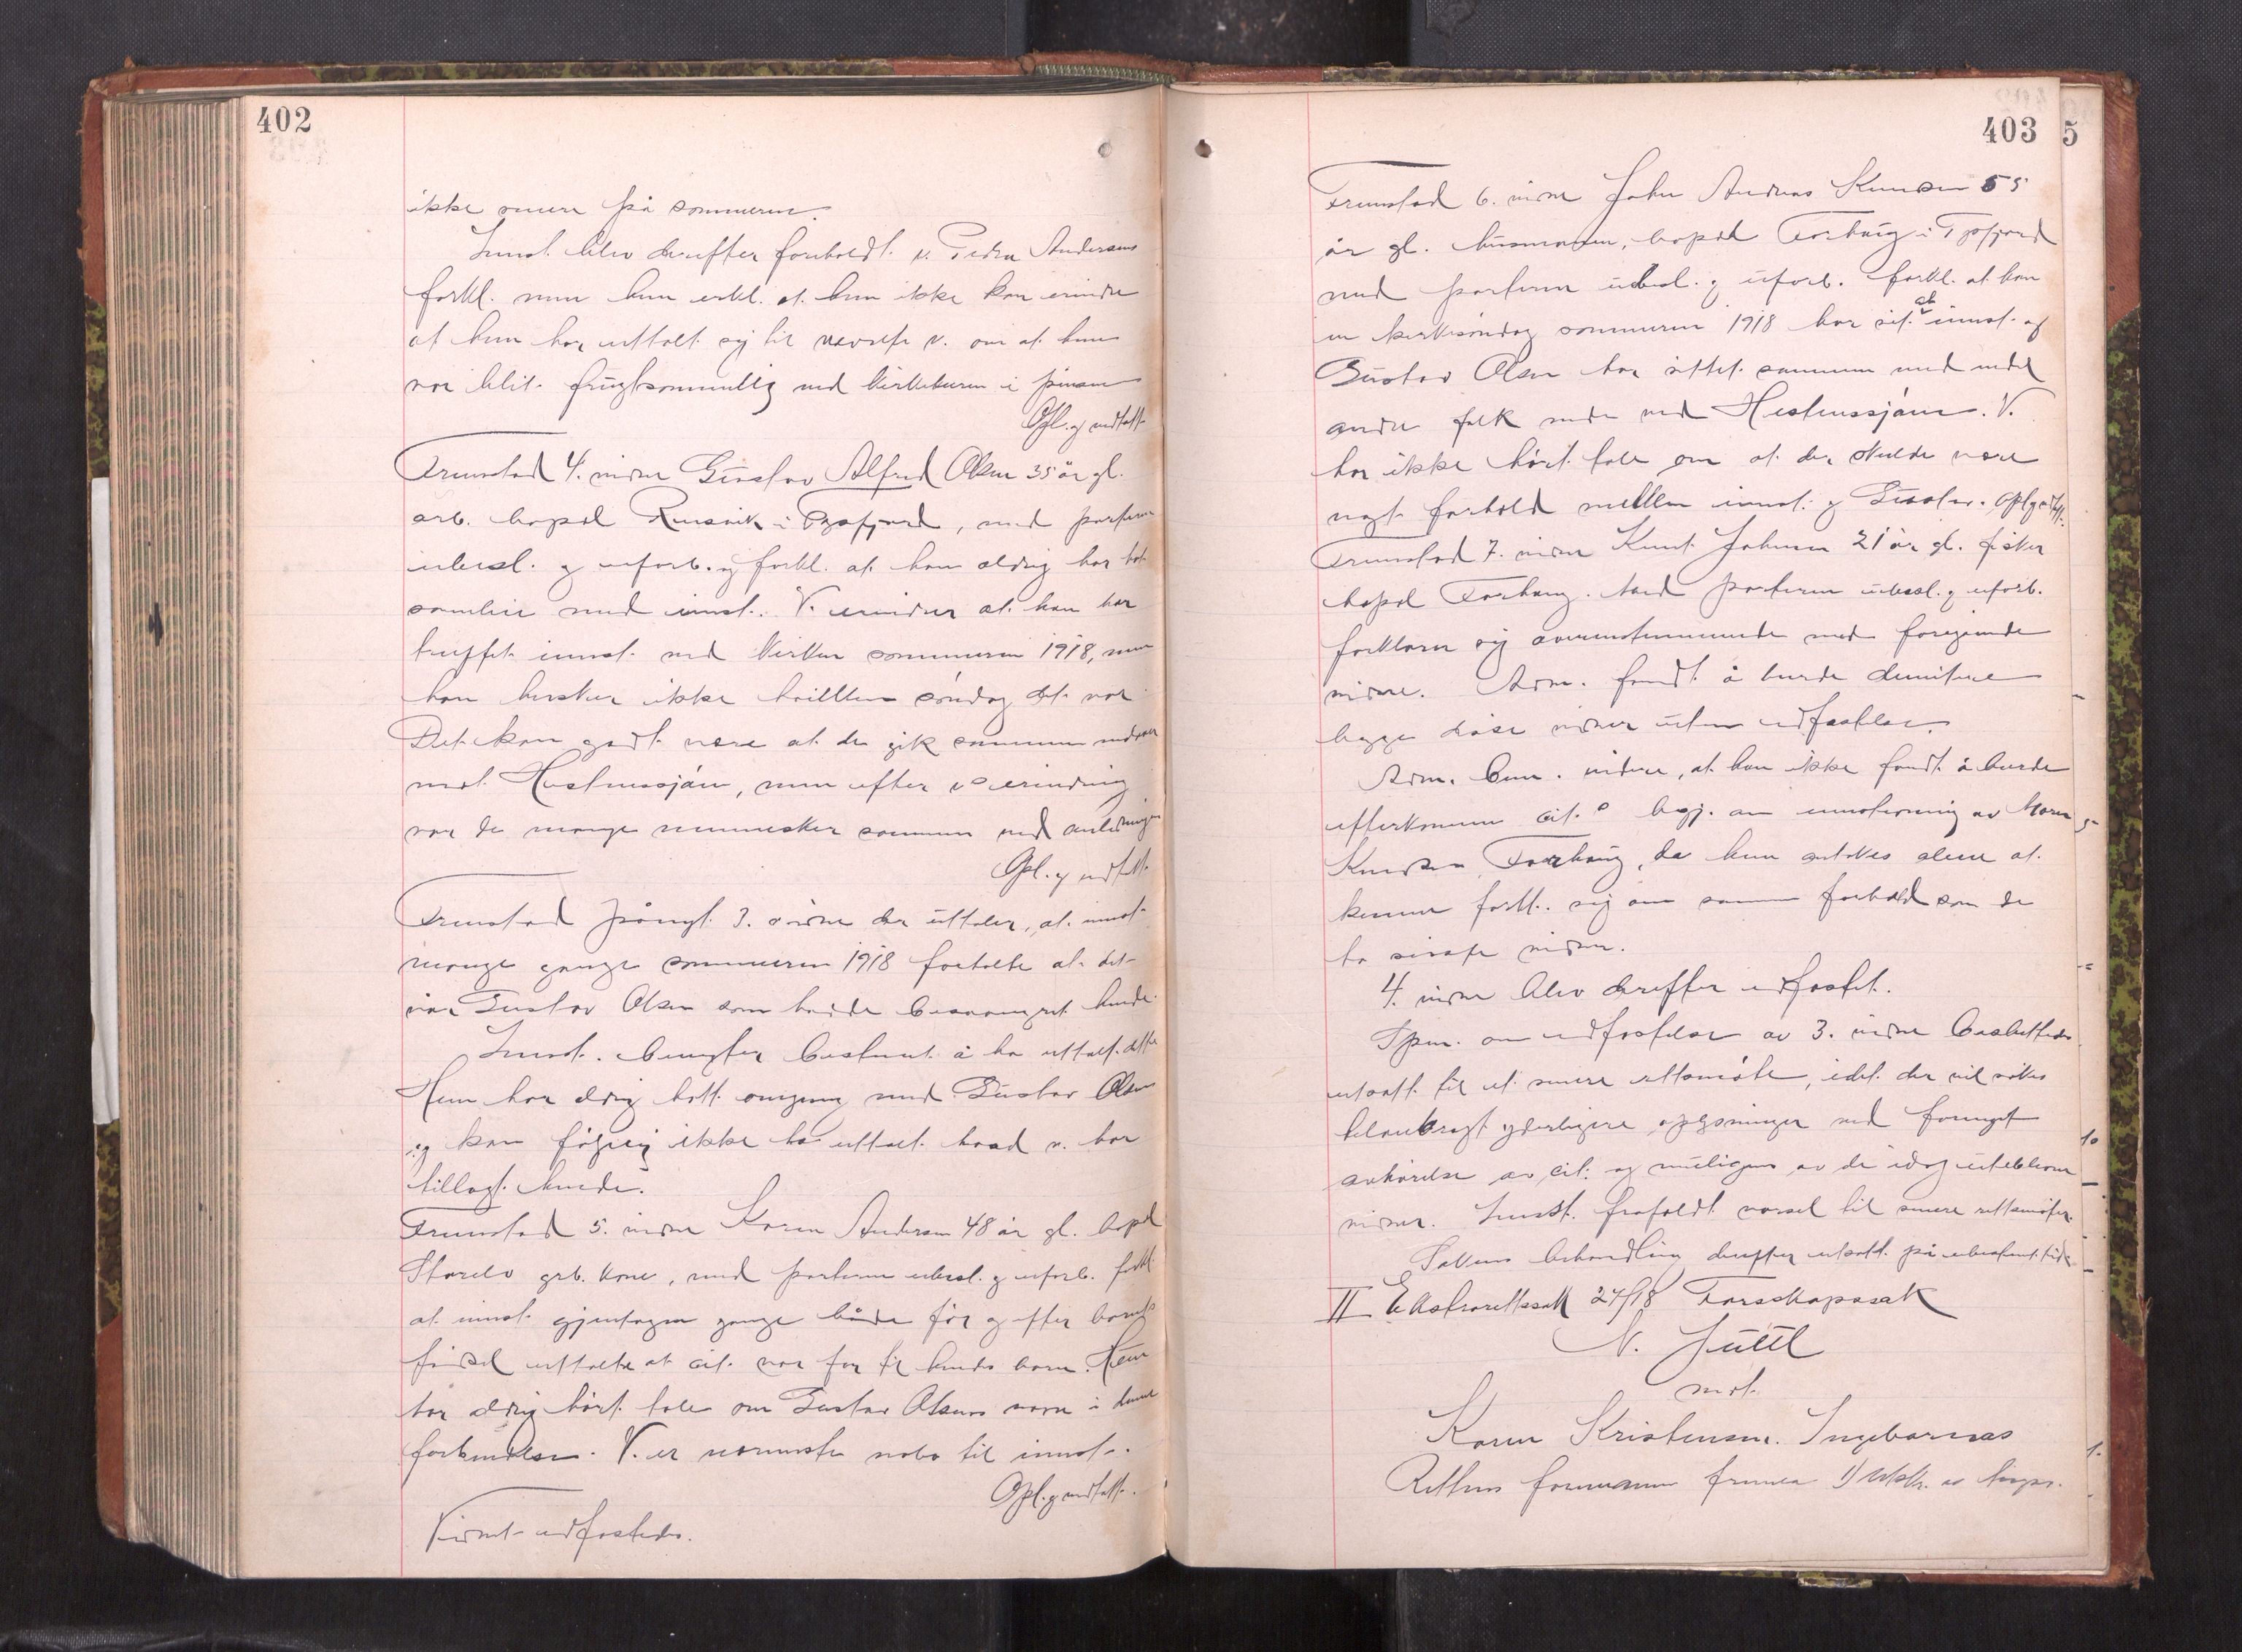 402
ikke mere på sommeren.
Innst. blev derefter foreholdt v. Petra Andersens
forkl. men hun erkl. at hun ikke kan erindre
at hun har uttalt sig til nævnte v. om at hun
var blit frugtsommelig ved kirketuren i pinsen
Opl. og vedtatt.
Fremstod 4. vidne Gustav Alfred Olsen 35 år gl.
arb. bopæl i Tysfjord, med partene
ubesl. og uforb. og forkl. at han aldrig har hat
samleie med innst. V. erindrer at han har
truffet innst. ved kirken sommeren 1918, men
han husker ikke hvilken søndag det var
Det kan godt være at de gik sammen nedover
mot Hestnessjøen, men efter v's erindring
var de mange mennesker sammen ved anledningen
Opl. og vedtatt.
Fremstod pånyt 3. vidne der uttaler, at innst.
mange gange sommeren 1918 fortalte at det
var Gustav Olsen som hadde besvangret hende.
Innst. benegter bestemt å ha uttalt dette
Hun har aldrig hatt omgang med Gustav Olsen
og kan følgelig ikke ha uttalt hvad v. har
tillagt hende.
Fremstod 5. vidne Karen Andersen 48 år gl. bopæl
Storelv grb. kone, med partene ubesl. og uforb. forkl.
at innst. gjentagne gange både før og efter barnets
fødsel uttalte at cit. var far til hendes barn. Hun
har aldrig hørt tale om Gustav Olsens navn i denne
forbindelse. V. er nærmeste nabo til innst.
Opl. og vedtatt.
Vidnet edfæstedes.
403
5
Fremstod 6. vidne John Andreas Knutsen 55
år gl. husmann, bopæl Forhaug i Tysfjord
med partene ubesl. og uforb. forkl. at han
en kirkesøndag sommeren 1918 har set at innst. og
Gustav Olsen har sittet sammen med endel
andre folk nede ved Hestnessjøen. V.
har ikke hørt tale om at der skulde være
nogt forhold mellem innst. og Gustav. Opl. og vedtatt.
Fremstod 7. vidne Knut Johnsen 21 år gl. fisker
bopæl Forhaug. Med partene ubesl. og uforb.
forklarer sig overensstemmende med foregående
vidne. Adm. fandt å burde dimitere
begge disse vidner uten edfæstelse.
Adm. bem. videre, at han ikke fandt å burde
efterkomme cit.s begj. om innstevning av Maren
Knutsen Forhaug, da hun antokes alene at
kunne forkl. sig om samme forhold som de
to sidste vidner.
4. vidne blev derefter edfæstet.
Spm. om edfæstelse av 3. vidne besluttedes
utsatt til et senere rettsmøte, idet der vil søkes
tilveibragt yderligere oplysninger ved fornyet
avhørelse av cit. og muligens av de idag uteblevne
vidner. Innst. frafaldt varsel til senere rettsmøter.
Sakens behandling derefter utsatt på ubestemt tid.
II Ekstrarettssak 27/18 Farskapssak
N. Juell
mot
Karen Kristensen. Ingebornes
Rettens formann fremla 1) utskr. av